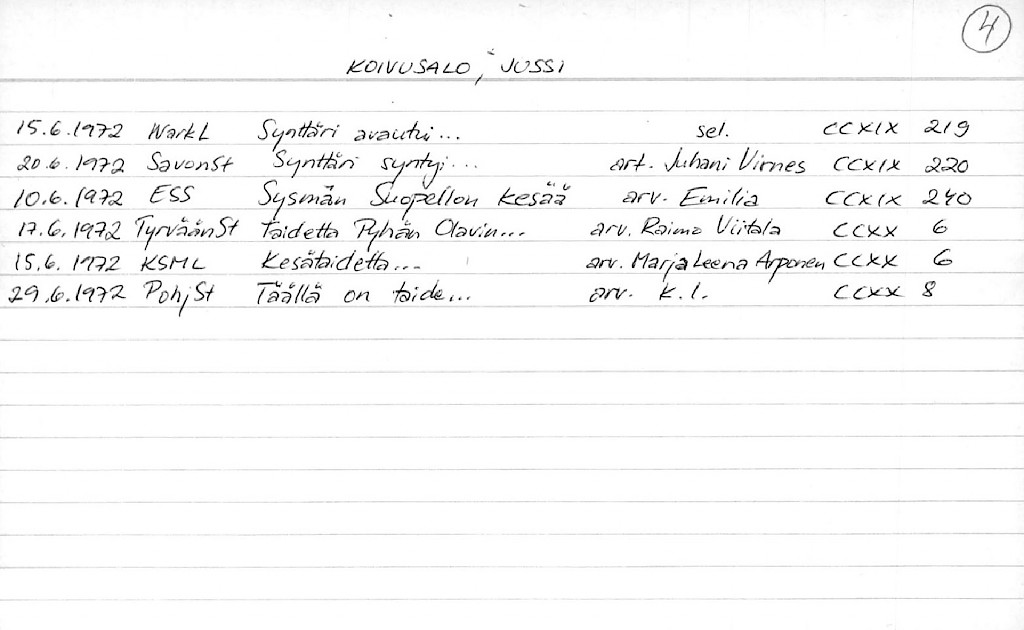 4
KOIVUSALO, JUSSI
15.6.1972 WarkL Synttäri avautui... sel. CCXIX 219
20.6.1972 SavonSt Synttäri syntyi... art. Juhani Virnes CCXIX 220
10.6.1972 ESS Sysmän Suopellon kesää arv. Emilia CCXIX 240
17.6.1972 TyrväänSt taidetta Pyhän Olavin... arv. Raimo Viitala CCXX 6
15.6.1972 KSML Kesätaidetta... arv. Marja Leena Arponen CCXX 6
29.6.1972 PohjSt Täällä on taide... arv. K.L. CCXX 8